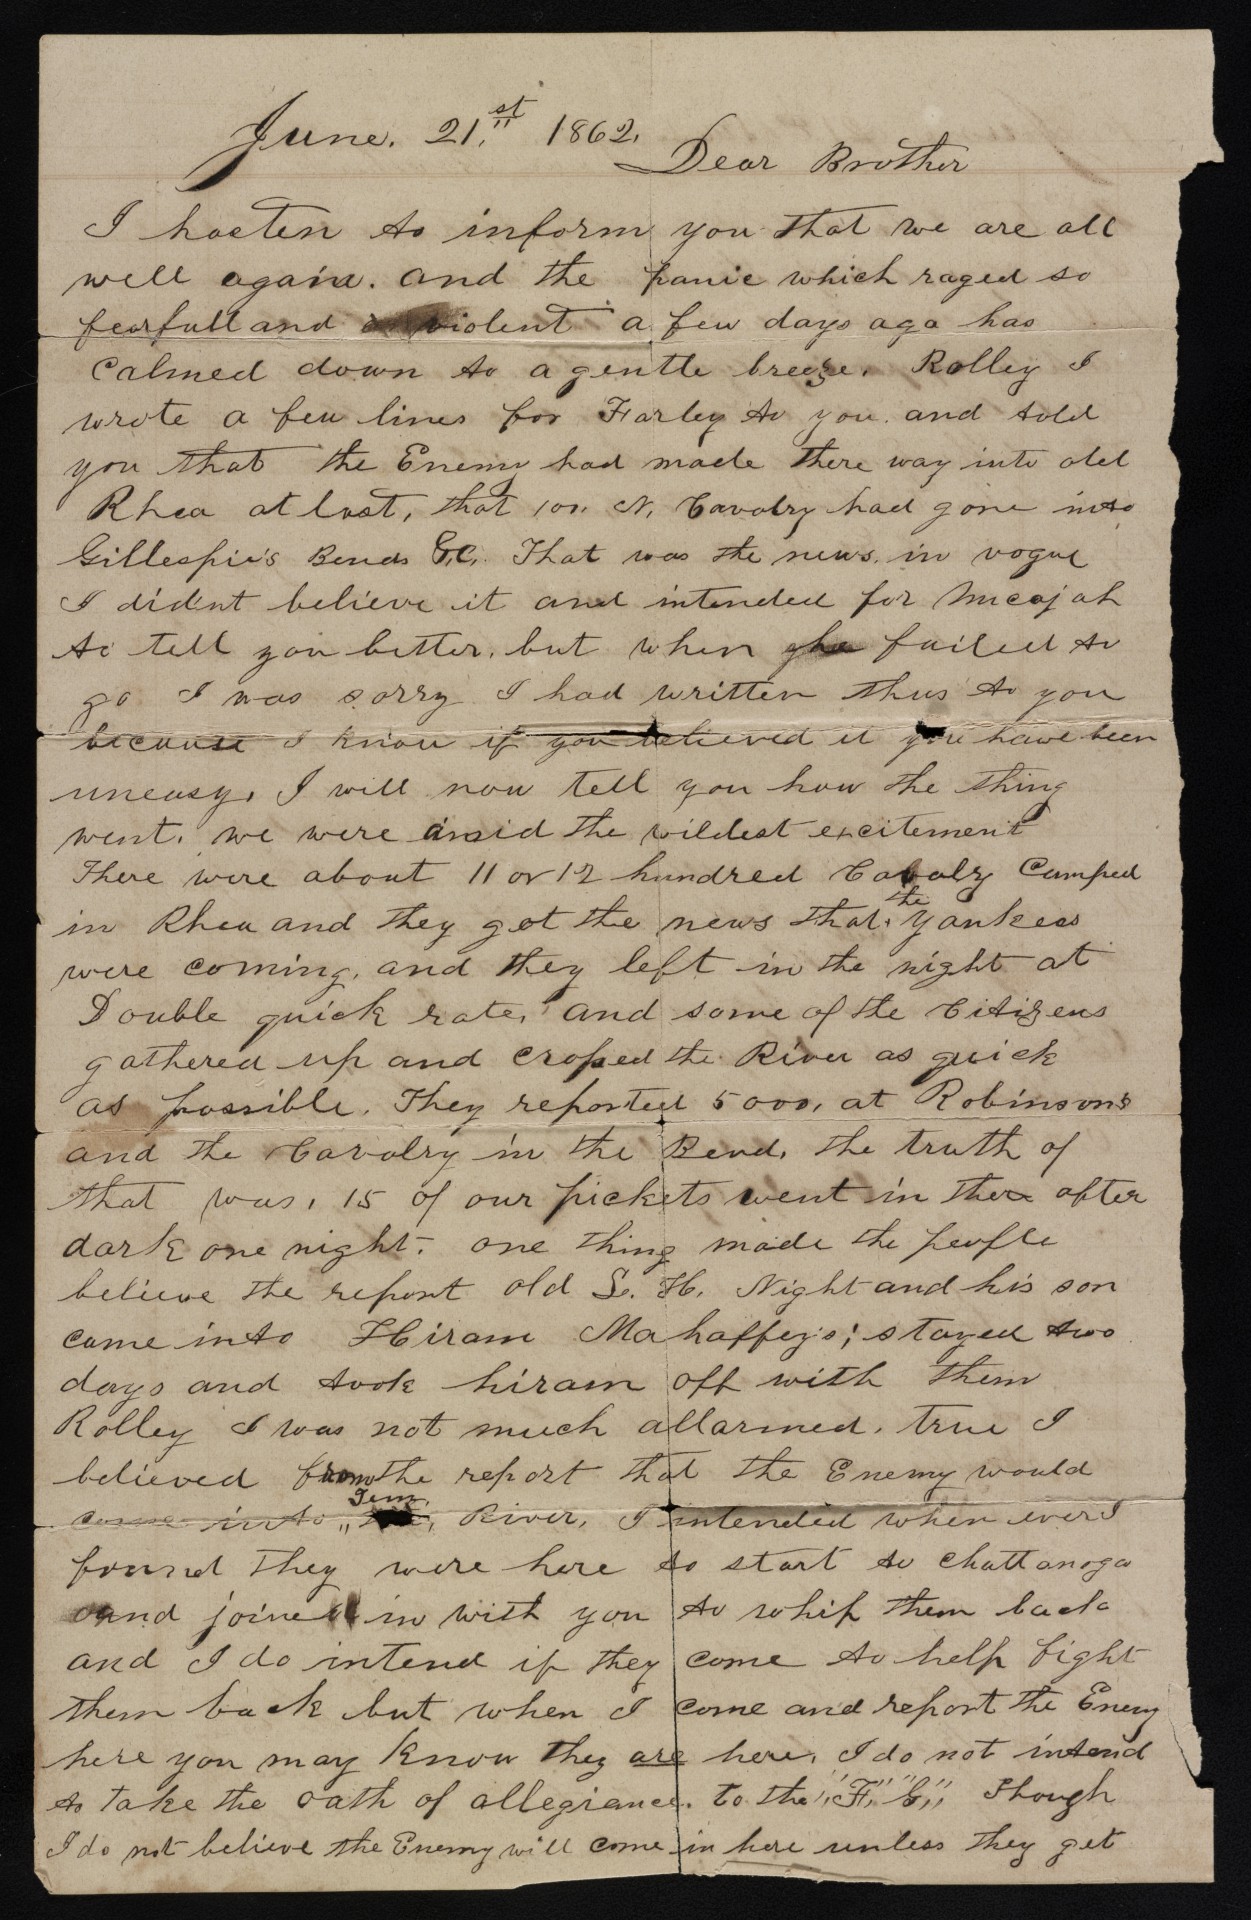 June. 21.st 1862.
Dear Brother
I hasten to inform you that we are all
well again. and the panic which raged so
fearfull and violent a few days ago has
Calmed down to a gentle breeze. Rolley I
wrote a few lines for Farley to you. and told
you that the Enemy had made there way into old
Rhea at last, that 100. N. Cavalry had gone into
Gillespie's Bends &C. That was the news in vogue
I didnt believe it and intended for Micajah
to tell you better. but when he failed to
go I was sorry I had written thus to you
because I know if you believed it you have been
uneasy. I will now tell you how the thing
went. we were amid the wildest excitement
There were about 11 or 12 hundred Cavalry Camped
in Rhea and they got the news that the Yankees
were coming, and they left in the night at
Double quick rate, and some of the Citizens
gathered up and crossed the River as quick
as possible. They reported 5000, at Robinsons
and the Cavalry in the Bend. the truth of
that was, 15 of our pickets went in there after
dark one night. one thing made the people
believe the report old S. H. Night and his son
came into Hiram Mahaffey's; stayed two
days and took hiram off with them
Rolley I was not much allarmed. true I
believed from the report that the Enemy would
come into Tenn. River, I intended when ever I
found they were here to start to Chattanoga
and joine in with you to whip them back
and I do intend if they come to help fight
them back but when I come and report the Enemy
here you may know they are here. I do not intend
to take the oath of allegiance. to the "F," "G," Though
I do not believe the Enemy will come in here unless they get